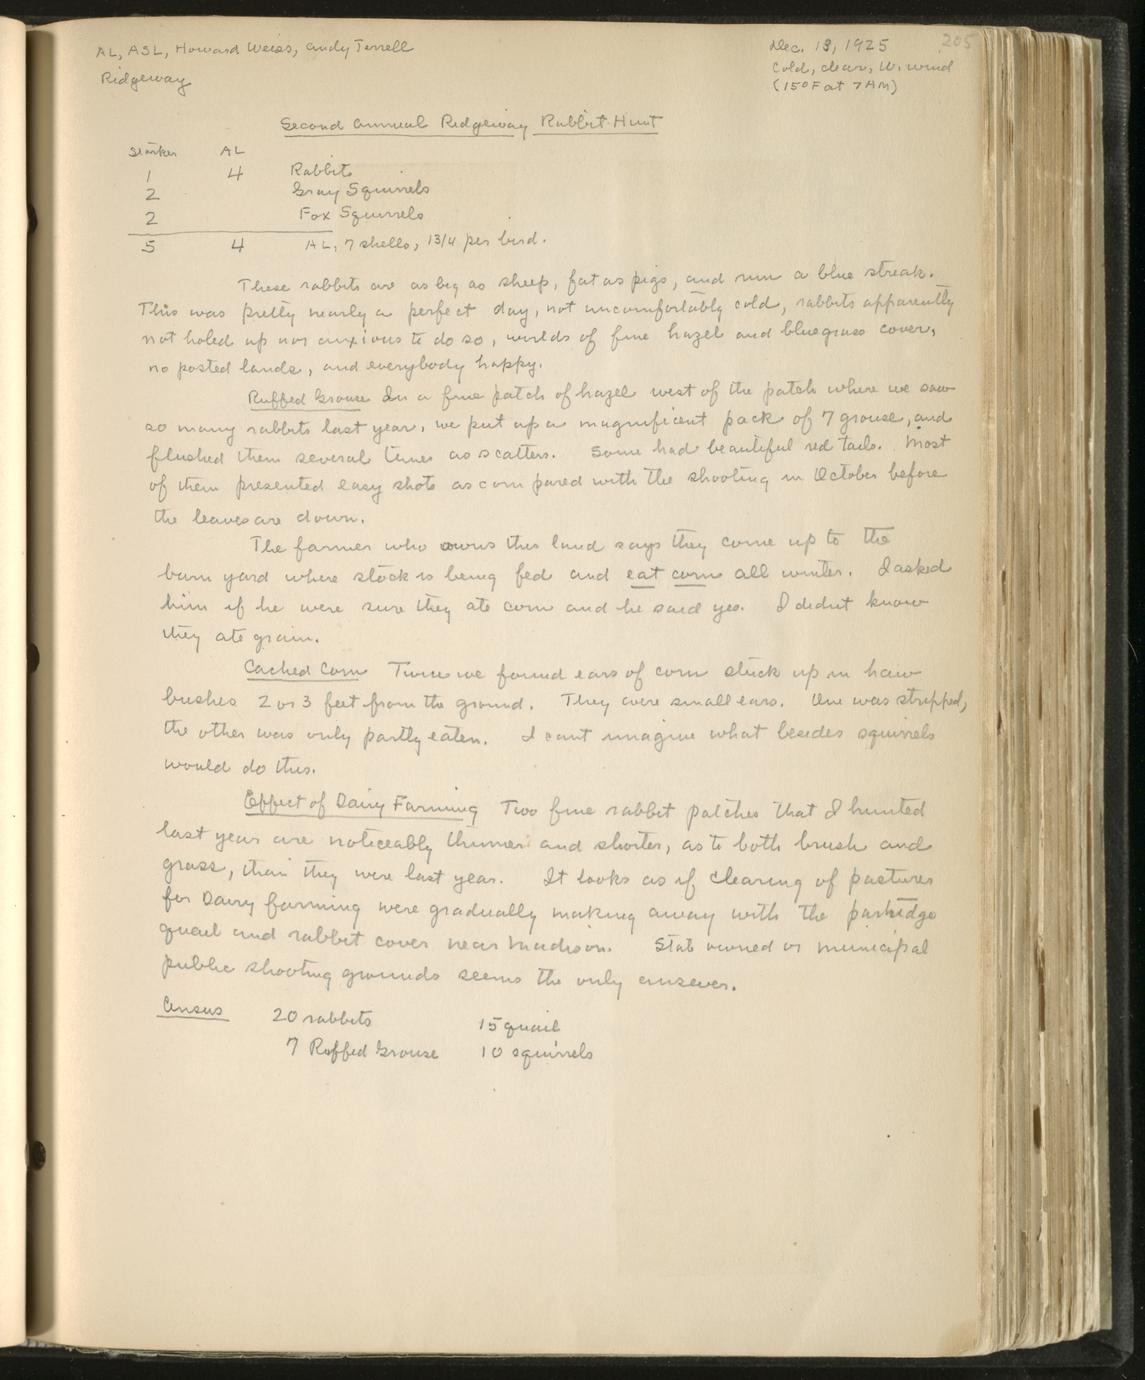 AL, ASL, Howard Weiss, Andy Terrell
Ridgeway
Dec. 13, 1925
Cold, clear, W. wind
(15° F at 7 AM)
205
Second Annual Ridgeway Rabbit Hunt
Starker AL
1 4 Rabbits
2 Gray Squirrels
2 Fox Squirrels
5 4 AL, 7 shells, 1 3/4 per bird.
These rabbits are as big as sheep, fat as pigs, and run a blue streak.
This was pretty nearly a perfect day, not uncomfortably cold, rabbits apparently
not holed up nor anxious to do so, worlds of fine hazel and bluegrass cover,
no posted lands, and everybody happy.
Ruffed Grouse In a fine patch of hazel west of the patch where we saw
so many rabbits last year, we put up a magnificent pack of 7 grouse, and
flushed them several times as scatters. Some had beautiful red tails. Most
of them presented easy shots as compared with the shooting in October before
the leaves are down.
The farmer who owns this land says they come up to the
barn yard where stock is being fed and eat corn all winter. I asked
him if he were sure they ate corn and he said yes. I didnt know
they ate grain.
Cached Corn Twice we found ears of corn stuck up in haw
bushes 2 or 3 feet from the ground. They were small ears. One was stripped,
the other was only partly eaten. I cant imagine what besides squirrels
would do this.
Effect of Dairy Farming Two fine rabbit patches that I hunted
last year are noticeably thinner and shorter, as to both brush and
grass, than they were last year. It looks as if clearing of pastures
for Dairy farming were gradually making away with the partridge
quail and rabbit cover near Madison. State owned or municipal
public shooting grounds seems the only answer.
Census 20 rabbits 15 quail
7 Ruffed Grouse 10 squirrels